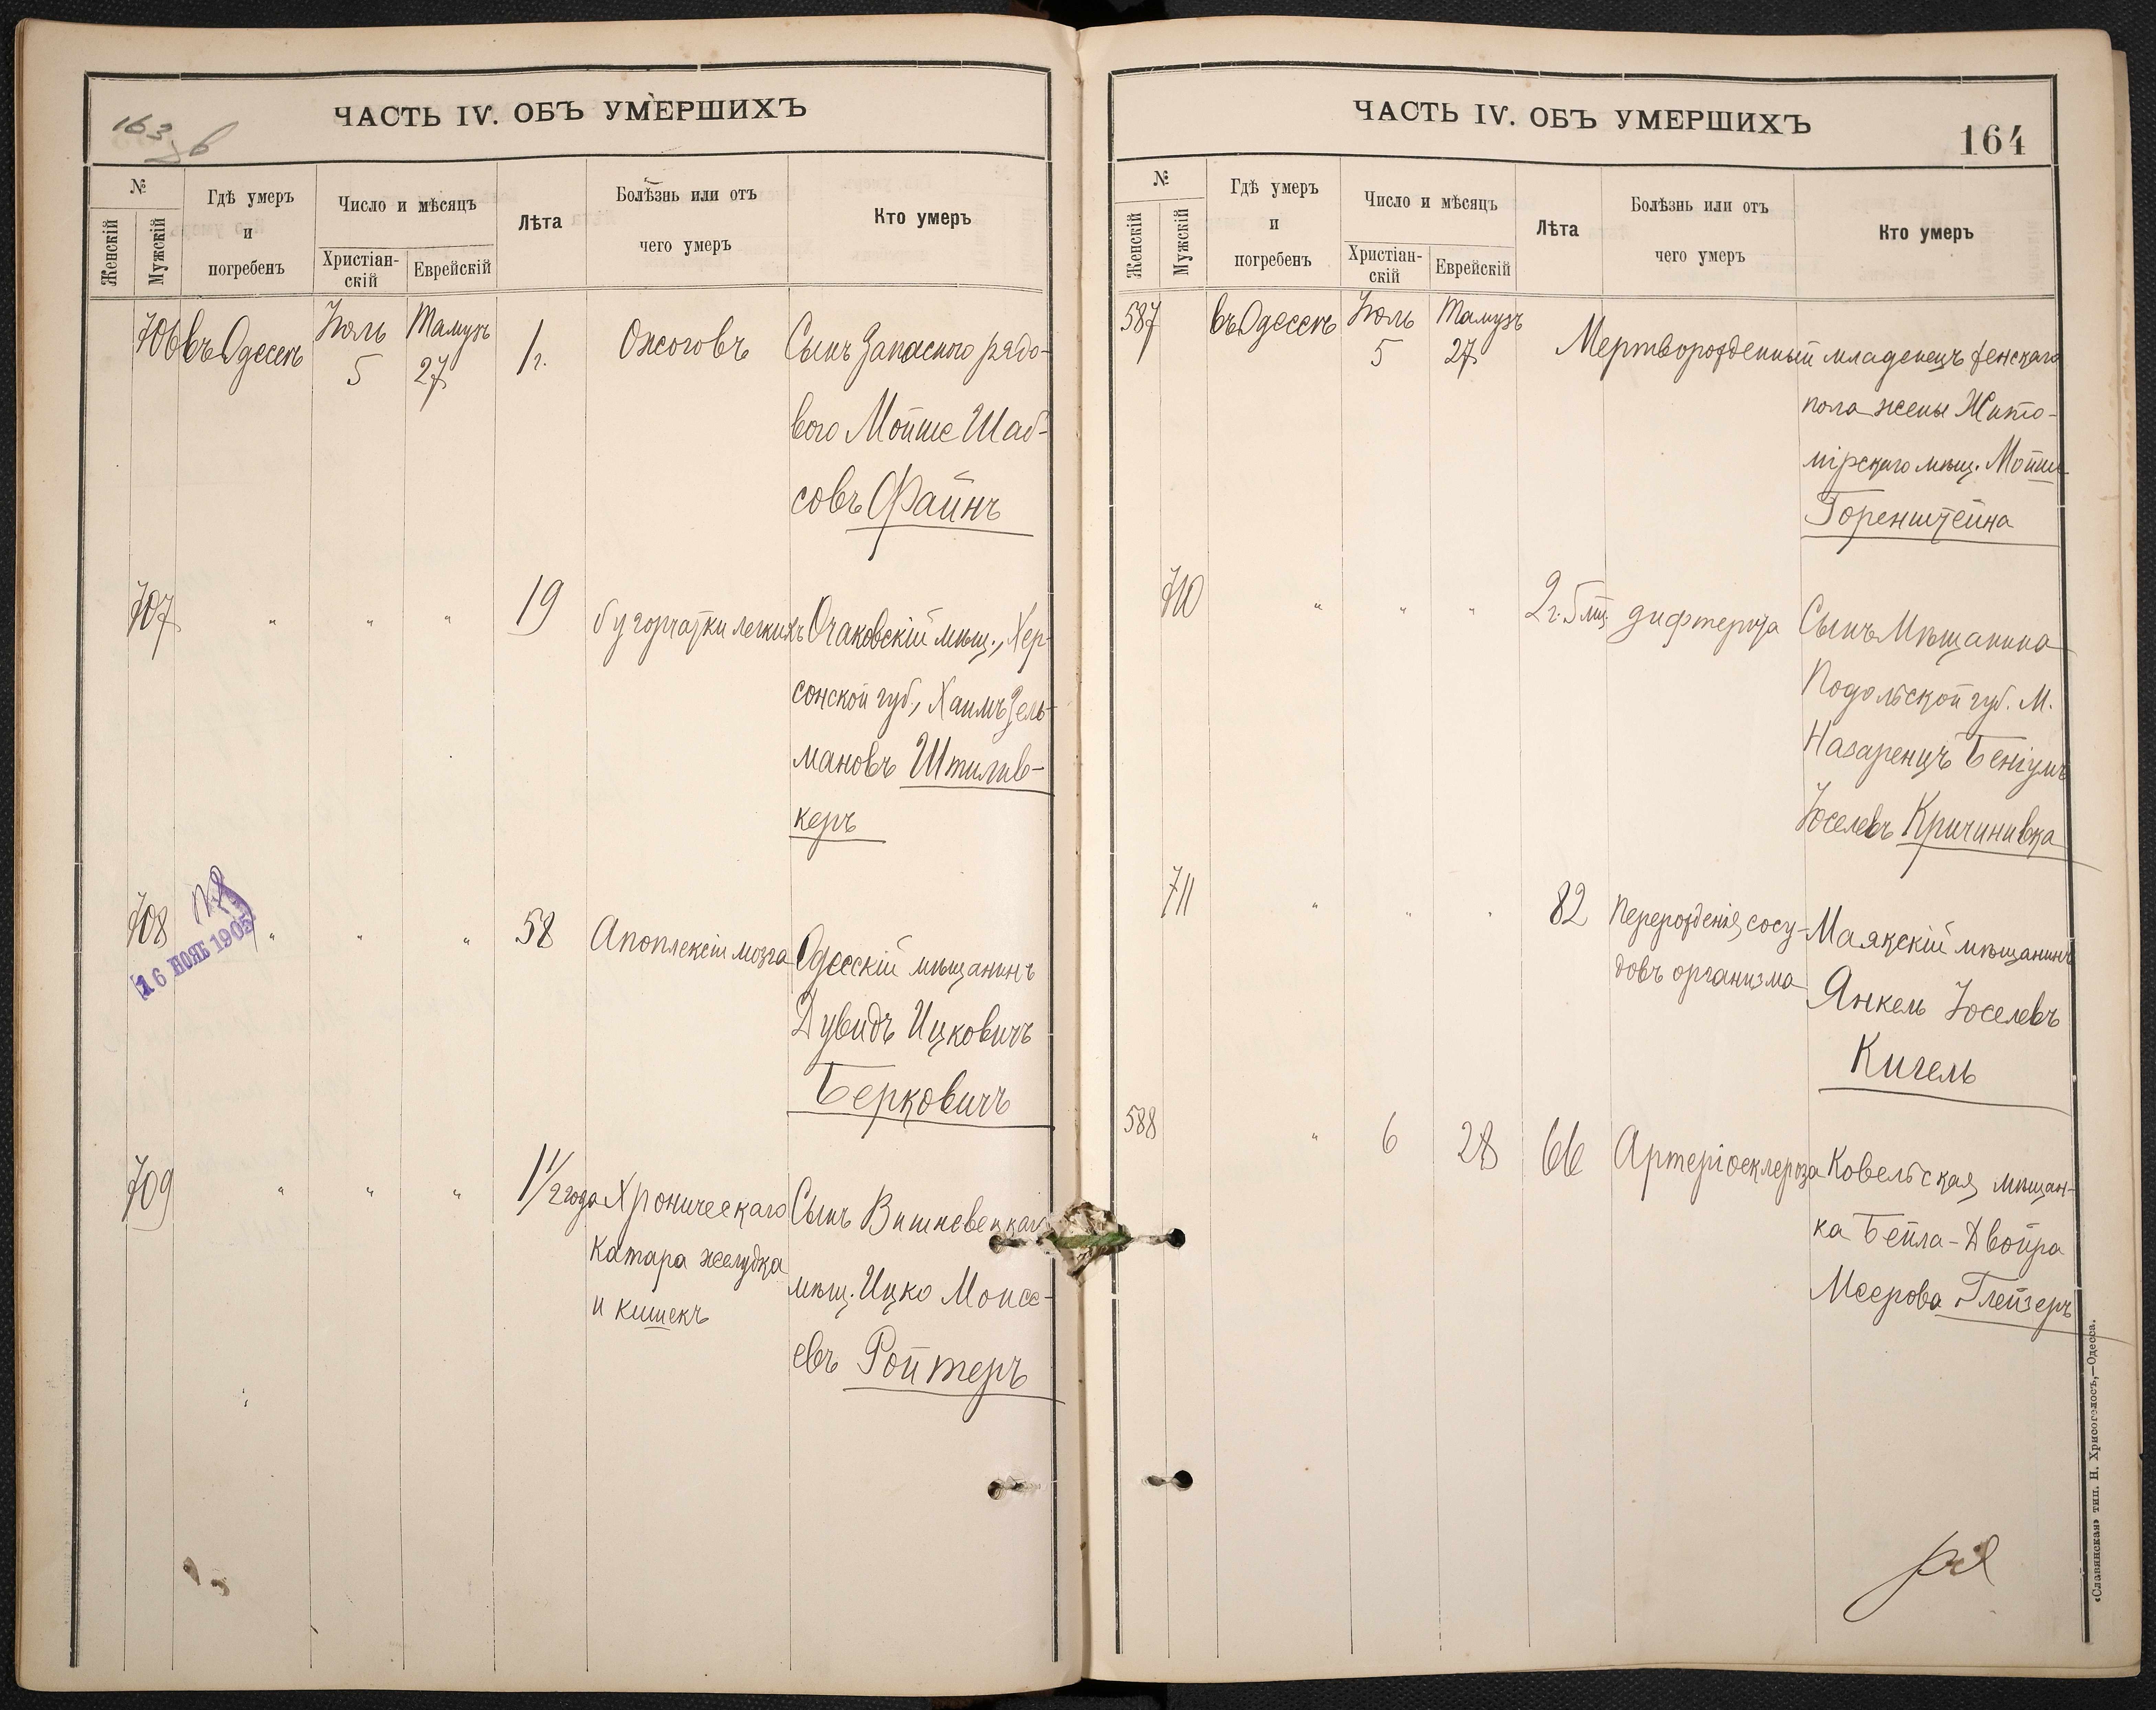 163 об
ЧАСТЬ IV. ОБЪ УМЕРШИХЪ
№
Женскій
Мужскій
Гдѣ умеръ
и
погребенъ
Число и мѣсяцъ
Христіан-
скій
Еврейскій
Лѣта
Болѣзнь или отъ
чего умеръ
Кто умеръ
706 въ Одессѣ Іюль 5 Тамузъ 27 1 г. Ожоговъ Сынъ Запаснаго рядо-
вого Мойше Шаб-
совъ Файнъ
707 " " " 19 бугорчатки легкихъ Очаковскій мѣщ., Хер-
сонской губ., Хаимъ Зель-
мановъ Штилив-
керъ
708 " " " 58 Апоплексіи мозга Одесскій мѣщанинъ
16 НОЯБ 1905
Дувидъ Ицковичъ
Берковичъ
709 " " " 1 1/2 года Хроническаго Сынъ Вишневецкаго
катара желудка мѣщ. Ицко Моисе-
и кишекъ
евъ Ройтеръ
ЧАСТЬ IV. ОБЪ УМЕРШИХЪ
164
№
Женскій
Мужскій
Гдѣ умеръ
и
погребенъ
Число и мѣсяцъ
Христіан-
скій
Еврейскій
Лѣта
Болѣзнь или отъ
чего умеръ
Кто умеръ
587 въ Одессѣ Іюль 5 Тамузъ 27 Мертворожденный младенецъ женскаго
пола жены Жито-
мірскаго мѣщ. Мойше
Горенштейна
710 " " " 2 г. 5 мц. дифтерита Сынъ Мѣщанина
Подольской губ. М.
Назаренцъ
Іоселевъ Кричинивка
711 " " " 82 Перерожденія сосу- Маякскій мѣщанинъ
довъ организма Янкель Іоселевъ
Кигель
588 " 6 28 66 Артеріосклероза Ковельская мѣщан-
ка Бейла-Двойра
Меерова Глейзеръ
«Славянская» тип. Н. Хрисогелосъ,—Одесса.